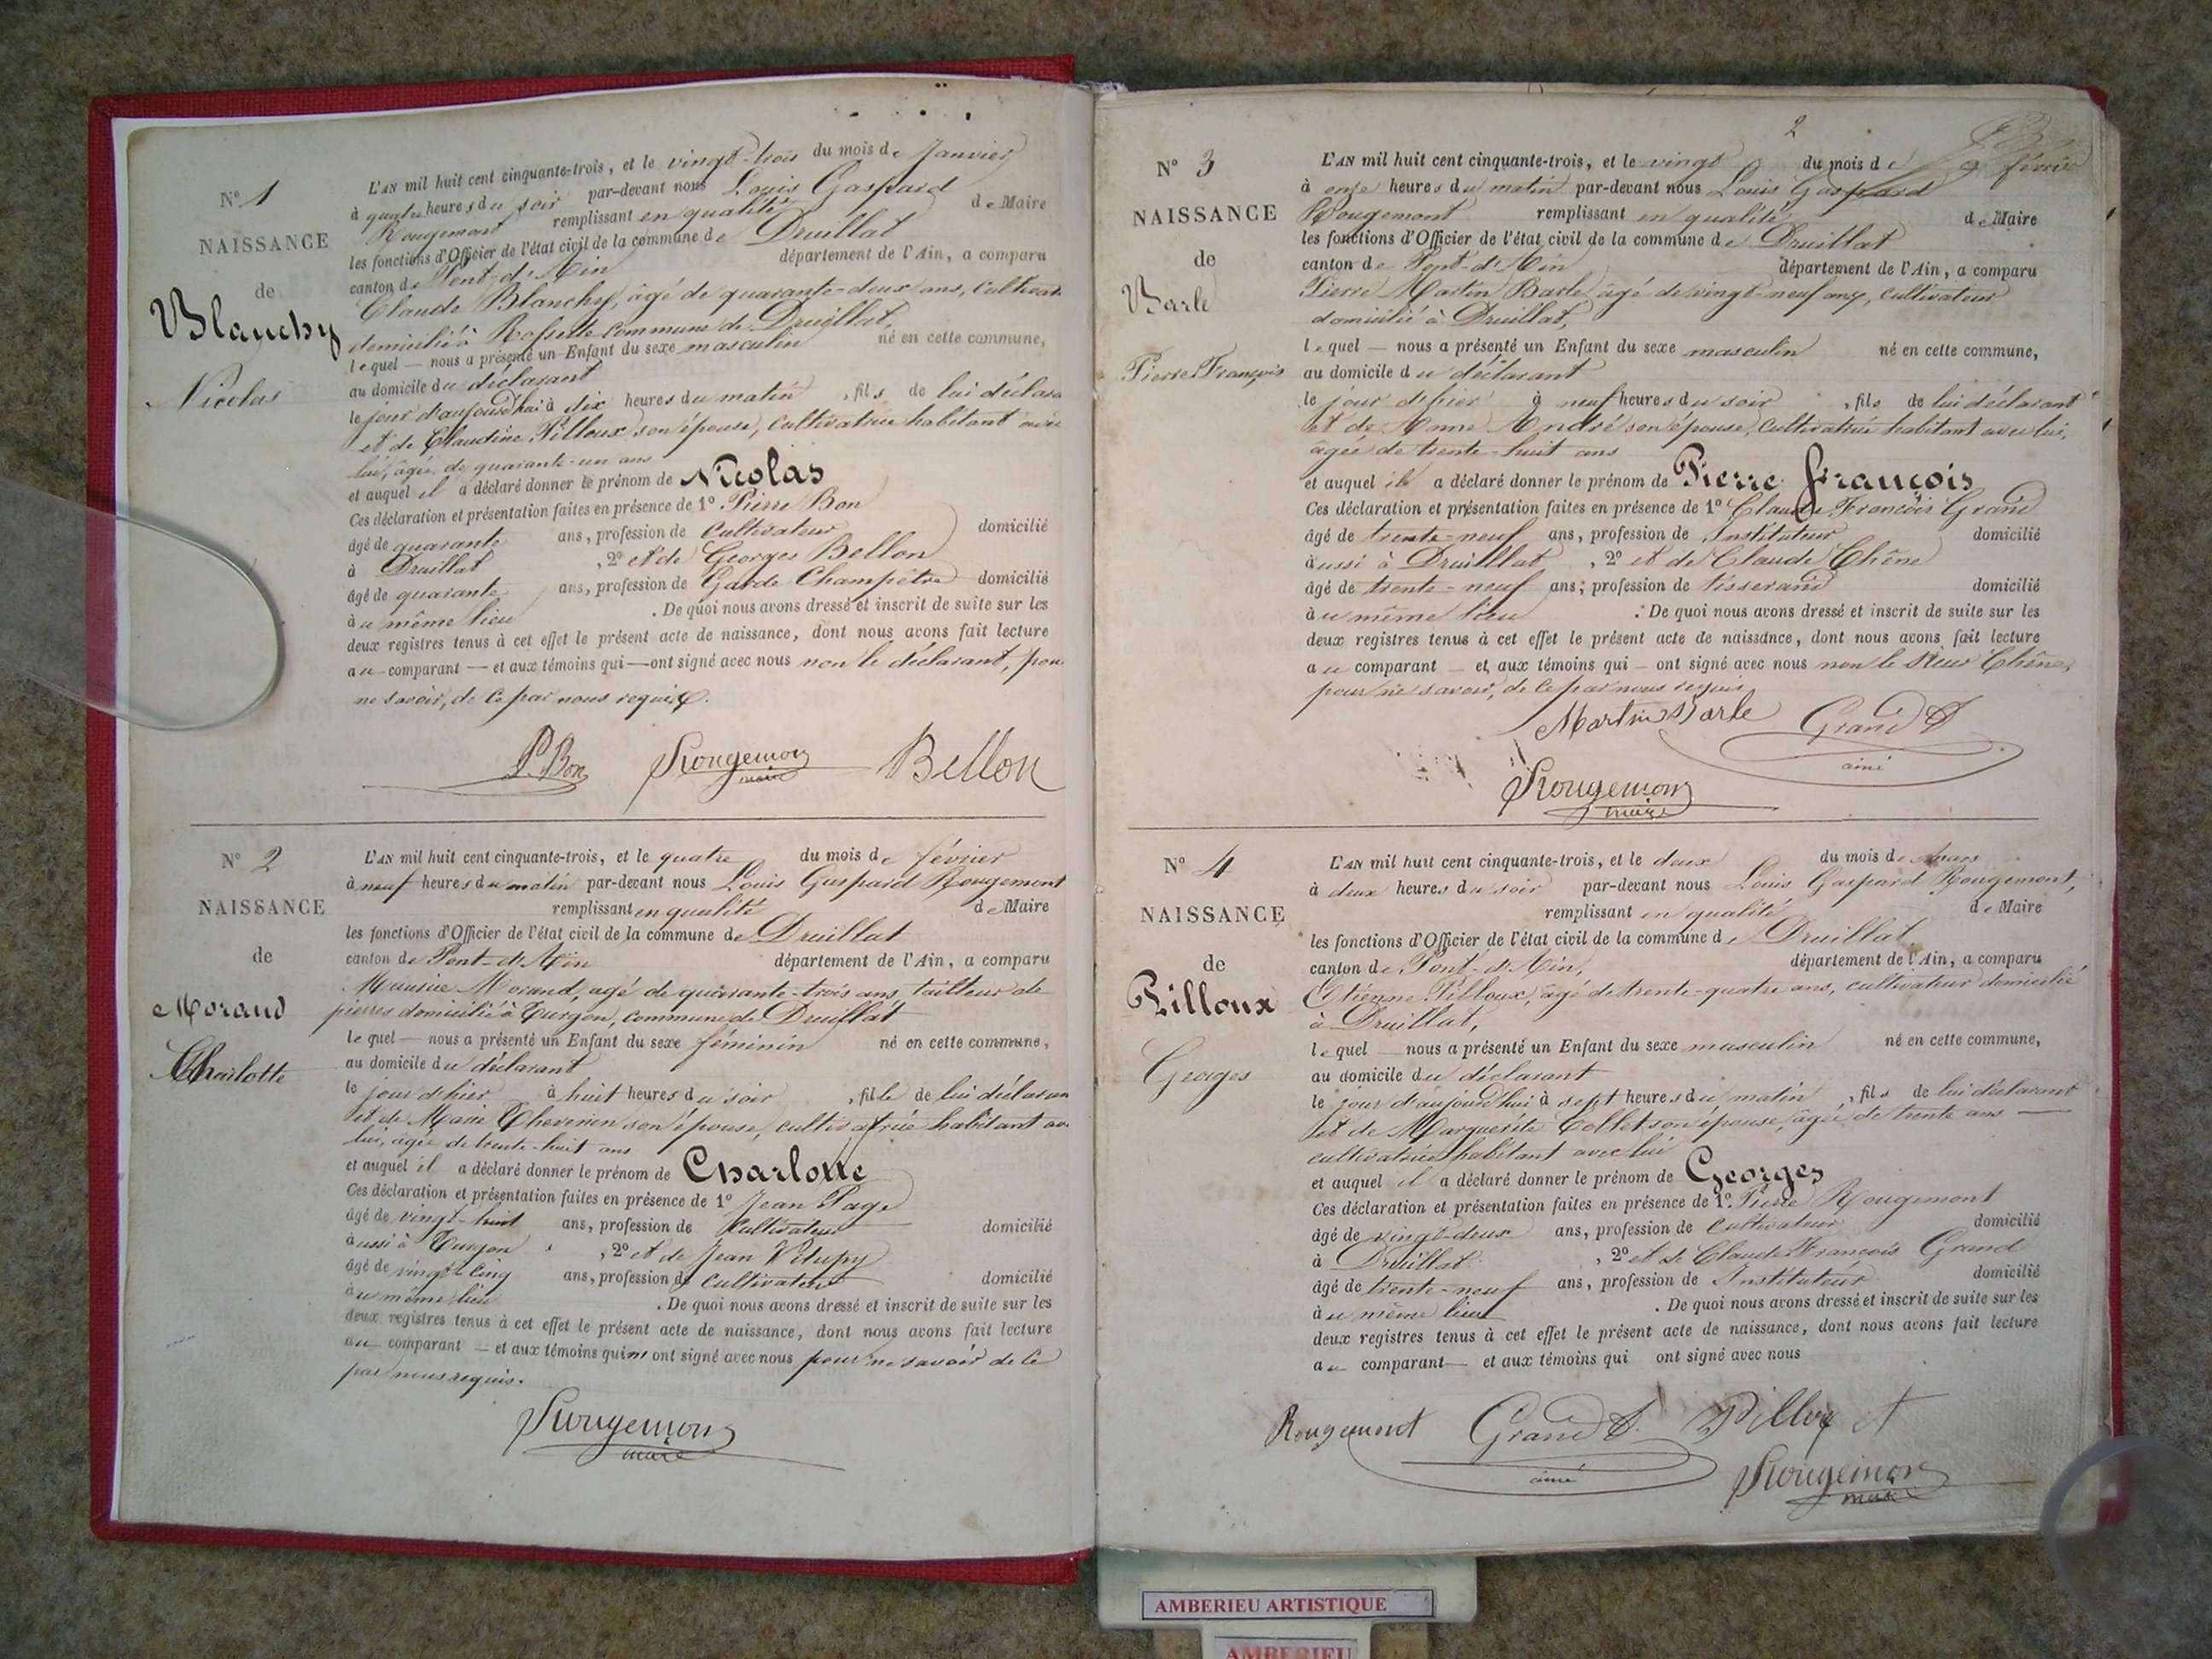 N° 1
NAISSANCE
de
Blanchy
Nicolas
L'AN mil huit cent cinquante-trois, et le vingt-trois du mois de Janvier
à quatre heures du soir par-devant nous Louis Gaspard
Rougemont remplissant en qualité de Maire
les fonctions d'Officier de l'état civil de la commune de Druillat
canton de Pont-d'Ain département de l'Ain, a comparu
Claude Blanchy, âgé de quarante-deux ans, cultivat
domicilié à Rossette commune de Druillat,
lequel — nous a présenté un Enfant du sexe masculin né en cette commune,
au domicile du déclarant
le jour d'aujourd'hui à dix heures du matin, fils de lui déclara
et de Claudine Pilloux son épouse, cultivatrice habitant avec
lui, âgée de quarante-un ans
et auquel il a déclaré donner le prénom de Nicolas
Ces déclaration et présentation faites en présence de 1° Pierre Bon
âgé de quarante ans, profession de Cultivateur domicilié
à Druillat, 2° et de Georges Bellon
âgé de quarante ans, profession de Garde Champêtre domicilié
au même lieu. De quoi nous avons dressé et inscrit de suite sur les
deux registres tenus à cet effet le présent acte de naissance, dont nous avons fait lecture
au comparant — et aux témoins qui — ont signé avec nous non le déclarant, pour
ne savoir, de ce par nous requis.
P. Bon Rougemont Bellon
maire
N° 2
NAISSANCE
de
Morand
Charlotte
L'AN mil huit cent cinquante-trois, et le quatre du mois de février
à neuf heures du matin par-devant nous Louis Gaspard Rougemont
remplissant en qualité de Maire
les fonctions d'Officier de l'état civil de la commune de Druillat
canton de Pont-d'Ain département de l'Ain, a comparu
Maurice Morand, âgé de quarante-trois ans, tailleur de
pierres domicilié à Turgon, commune de Druillat
lequel — nous a présenté un Enfant du sexe féminin né en cette commune,
au domicile du déclarant
le jour d'hier à huit heures du soir, fille de lui déclaran
et de Marie Thevenin son épouse, cultivatrice habitant av
lui, âgée de trente-huit ans
et auquel il a déclaré donner le prénom de Charlotte
Ces déclaration et présentation faites en présence de 1° Jean Page
âgé de vingt-huit ans, profession de Cultivateur domicilié
aussi à Turgon, 2° et de Jean
âgé de vingt-cinq ans, profession de cultivateur domicilié
au même lieu. De quoi nous avons dressé et inscrit de suite sur les
deux registres tenus à cet effet le présent acte de naissance, dont nous avons fait lecture
au comparant — et aux témoins qui n'ont signé avec nous pour ne savoir de ce
par nous requis.
Rougemont
maire
2
N° 3
NAISSANCE
de
Barle
Pierre François
L'AN mil huit cent cinquante-trois, et le vingt du mois de février
à onze heures du matin par-devant nous Louis Gaspard
Rougemont remplissant en qualité de Maire
les fonctions d'Officier de l'état civil de la commune de Druillat
canton de Pont-d'Ain département de l'Ain, a comparu
Pierre Martin Barle âgé de vingt-neuf ans, cultivateur
domicilié à Druillat,
lequel — nous a présenté un Enfant du sexe masculin né en cette commune,
au domicile du déclarant
le jour d'hier à neuf heures du soir, fils de lui déclarant
et de Anne André son épouse, cultivatrice habitant avec lui,
âgée de trente-huit ans
et auquel il a déclaré donner le prénom de Pierre François
Ces déclaration et présentation faites en présence de 1° Claude François Grand
âgé de trente-neuf ans, profession de Instituteur domicilié
aussi à Druillat, 2° et de Claude Chêne
âgé de trente-neuf ans; profession de tisserand domicilié
au même lieu. De quoi nous avons dressé et inscrit de suite sur les
deux registres tenus à cet effet le présent acte de naissance, dont nous avons fait lecture
au comparant — et aux témoins qui — ont signé avec nous non le sieur Chêne,
pour ne savoir, de ce par nous requis
Martin Barle Grand
aîné
Rougemont
maire
N° 4
NAISSANCE
de
Pilloux
Georges
L'AN mil huit cent cinquante-trois, et le deux du mois de mars
à deux heures du soir par-devant nous Louis Gaspard Rougemont,
remplissant en qualité de Maire
les fonctions d'Officier de l'état civil de la commune de Druillat
canton de Pont-d'Ain, département de l'Ain, a comparu
Etienne Pilloux, âgé de trente-quatre ans, cultivateur domicilié
à Druillat,
lequel — nous a présenté un Enfant du sexe masculin né en cette commune,
au domicile du déclarant
le jour d'aujourd'hui à sept heures du matin, fils de lui déclarant
et de Marguerite Collet son épouse, âgée de trente ans —
cultivatrice habitant avec lui
et auquel il a déclaré donner le prénom de Georges
Ces déclaration et présentation faites en présence de 1° Pierre Rougemont
âgé de vingt-deux ans, profession de cultivateur domicilié
à Druillat, 2° et de Claude François Grand
âgé de trente-neuf ans, profession de Instituteur domicilié
au même lieu. De quoi nous avons dressé et inscrit de suite sur les
deux registres tenus à cet effet le présent acte de naissance, dont nous avons fait lecture
au comparant — et aux témoins qui ont signé avec nous
Rougemont Grand
aîné
Rougemont
maire
AMBERIEU ARTISTIQUE
AMBERIEU